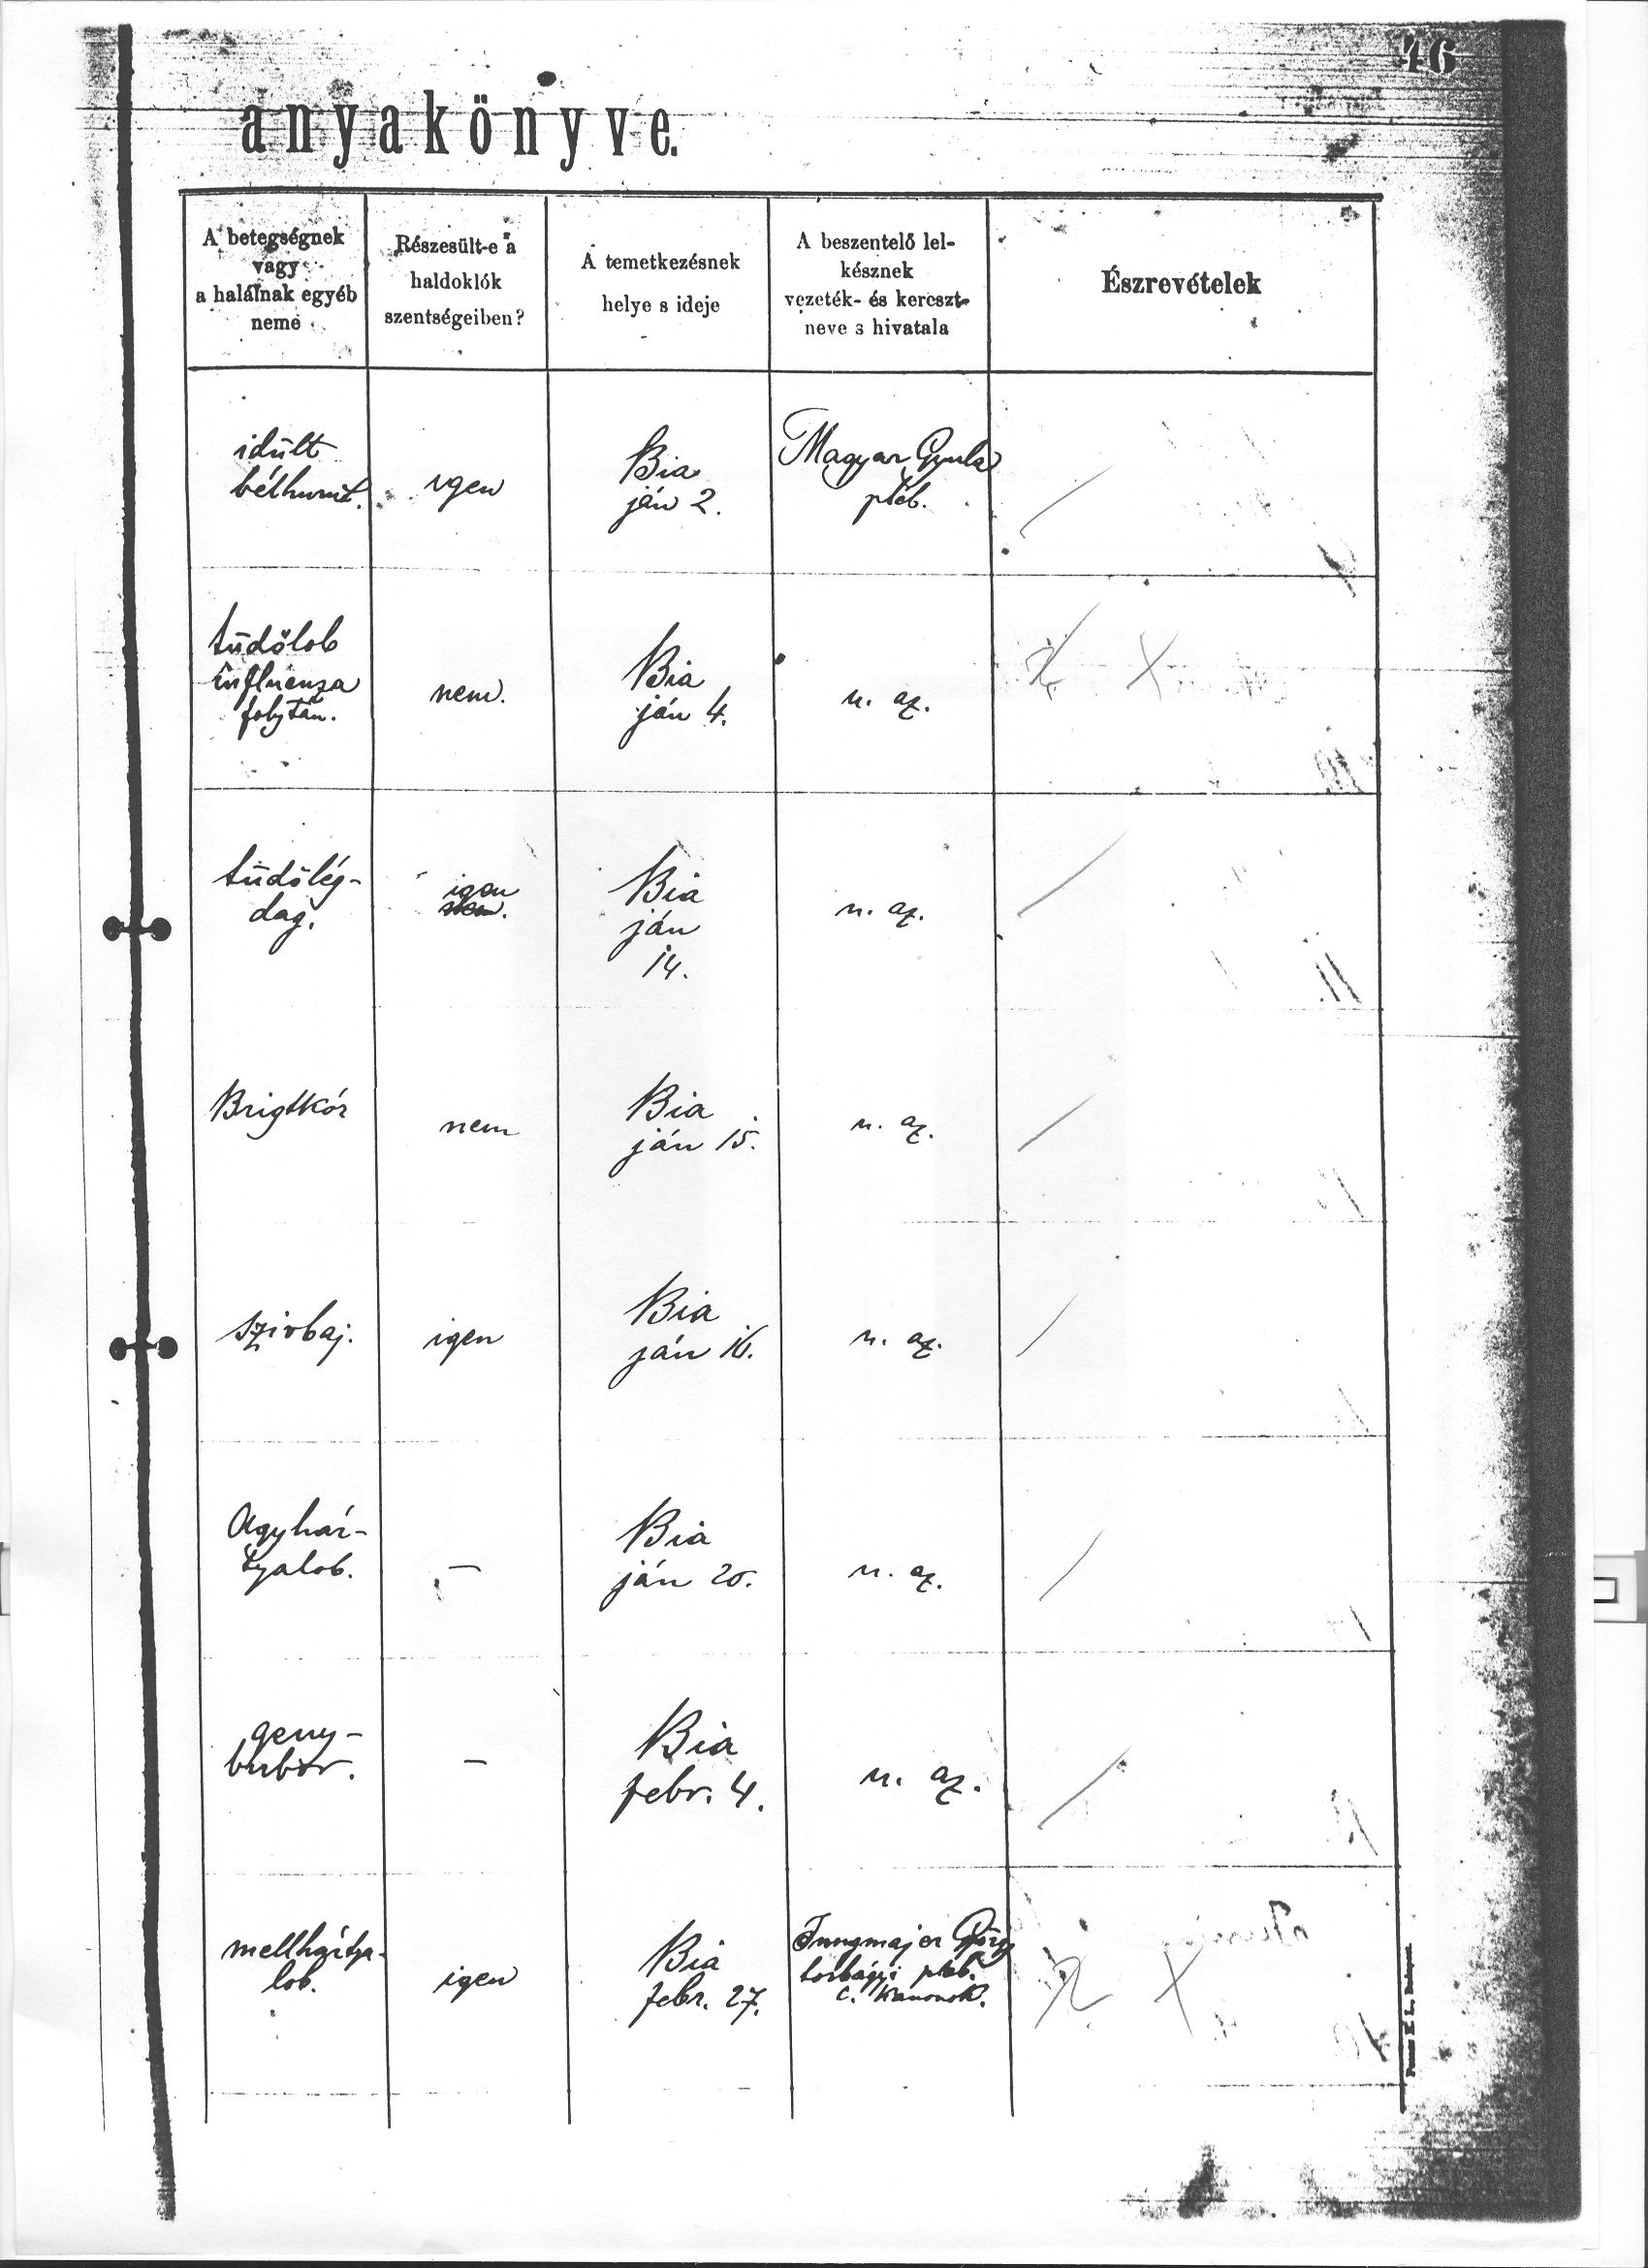 46
anyakönyve.
A betegségnek
vagy
a halálnak egyéb
neme
Részesült-e a
haldoklók
szentségeiben?
A temetkezésnek
helye s ideje
A beszentelő lel-
késznek
vezeték- és kereszt-
neve s hivatala
Észrevételek
idült
bélhurut.
igen
Bia
ján 2.
Magyar Gyula
pléb.
tüdőlob
influenza
folytán.
nem.
Bia
ján 4.
u. az.
tüdőlég-
dag.
igen
nem.
Bia
ján
14.
u. az.
Brigtkór
nem
Bia
ján 15.
u. az.
szivbaj.
igen
Bia
ján 16.
u. az.
Agyhár-
tyalob.
—
Bia
ján 20.
u. az.
geny-
—
Bia
febr. 4.
u. az.
mellhártya-
lob.
igen
Bia
febr. 27.
Jungmajer György
torbágyi pléb.
c. kanonok.